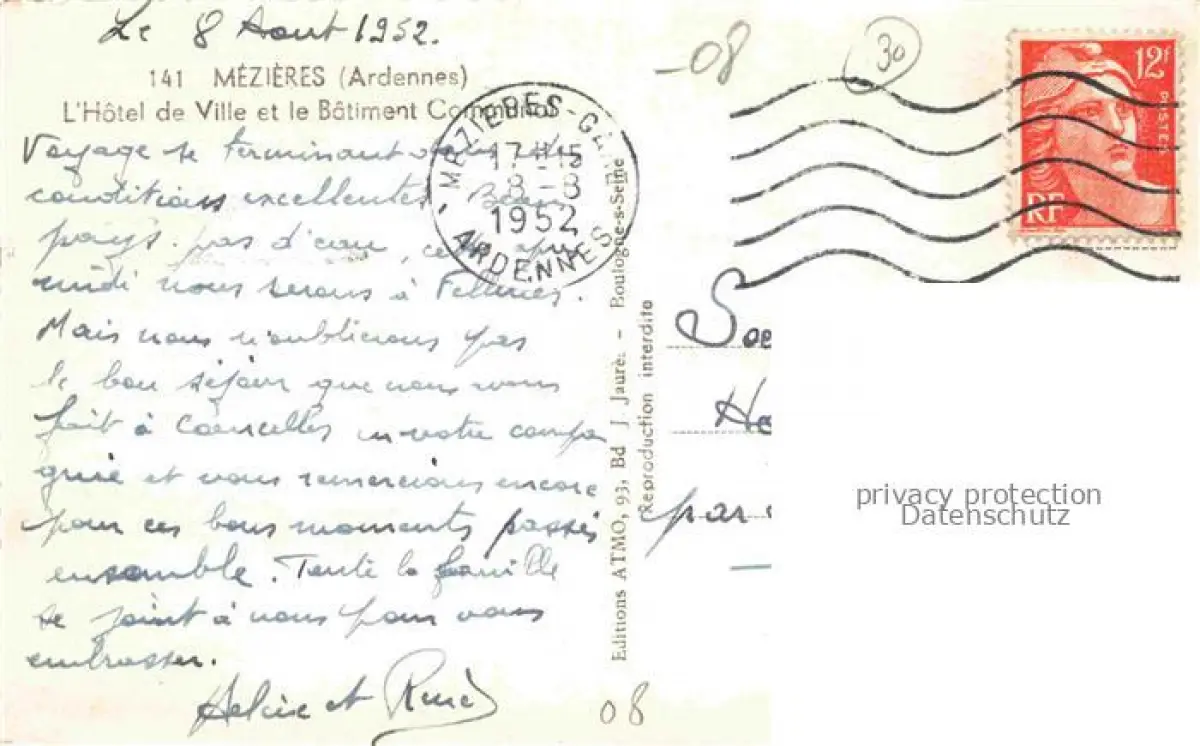 Le 8 Aout 1952.
141 MÉZIÈRES (Ardennes)
L'Hôtel de Ville et le Bâtiment Communal
Voyage se terminant dans des
conditions excellentes. Beau
pays. pas d'eau, cet après
midi nous serons à
Mais nous n'oublierons pas
le bon séjour que nous avons
fait à Courcelles en votre compa
gnie et vous remercions encore
pour ces bons moments passés
ensemble. Toute la famille
se joint à nous pour vous
embrasser.
et René
MEZIERES-GARE
17H15
8-8
1952
ARDENNES
Editions ATMO, 93, Bd J. Jaurès - Boulogne-s-Seine
(Reproduction interdite
-08
30
12F
POSTES
RF
Soe
He
par
privacy protection
Datenschutz
08